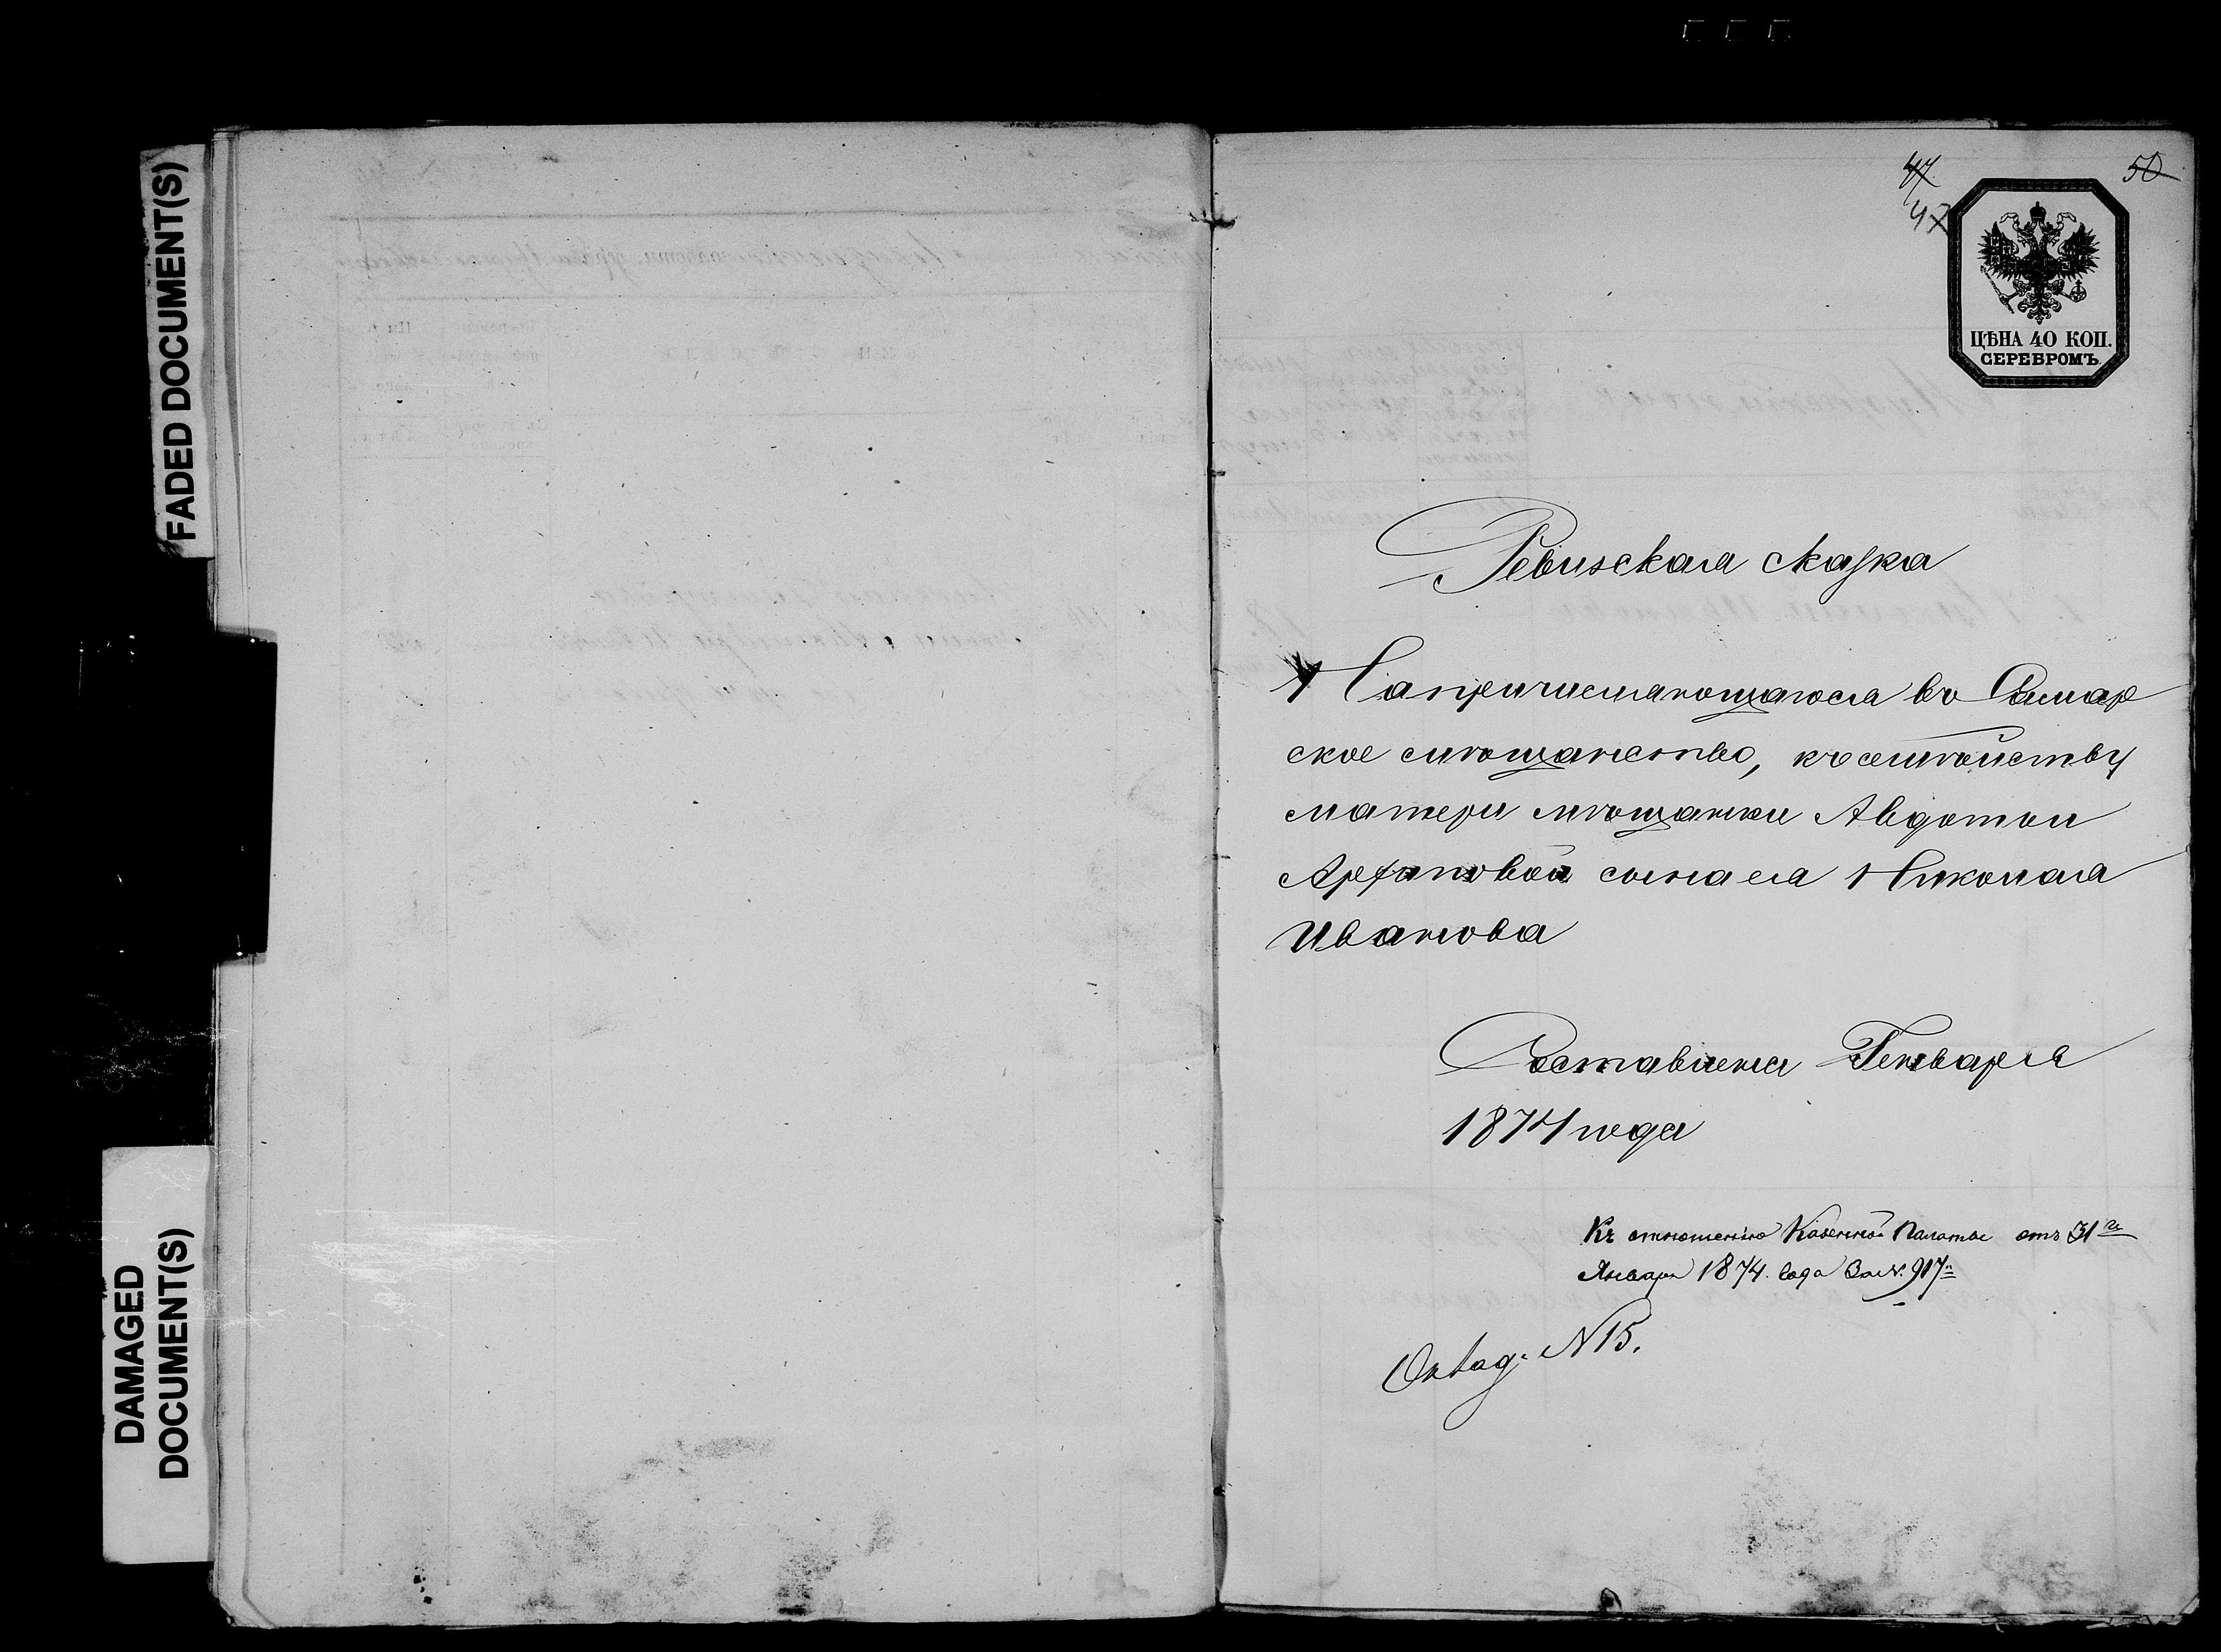 FADED DOCUMENT(S)
DAMAGED
DOCUMENT(S)
47
50
47
ЦѢНА 40 КОП.
СЕРЕБРОМЪ
Ревизская сказка
На причисляющагося въ Самар
ское мѣщанство, къ семѣйству
матери мѣщанки Авдотьи
сына ея Николая
Иванова
Составлена Генваря
1874 года
Къ отношенію Казенной Палаты отъ 31го
Января 1874. года За №. 917м
Оклад: №15.